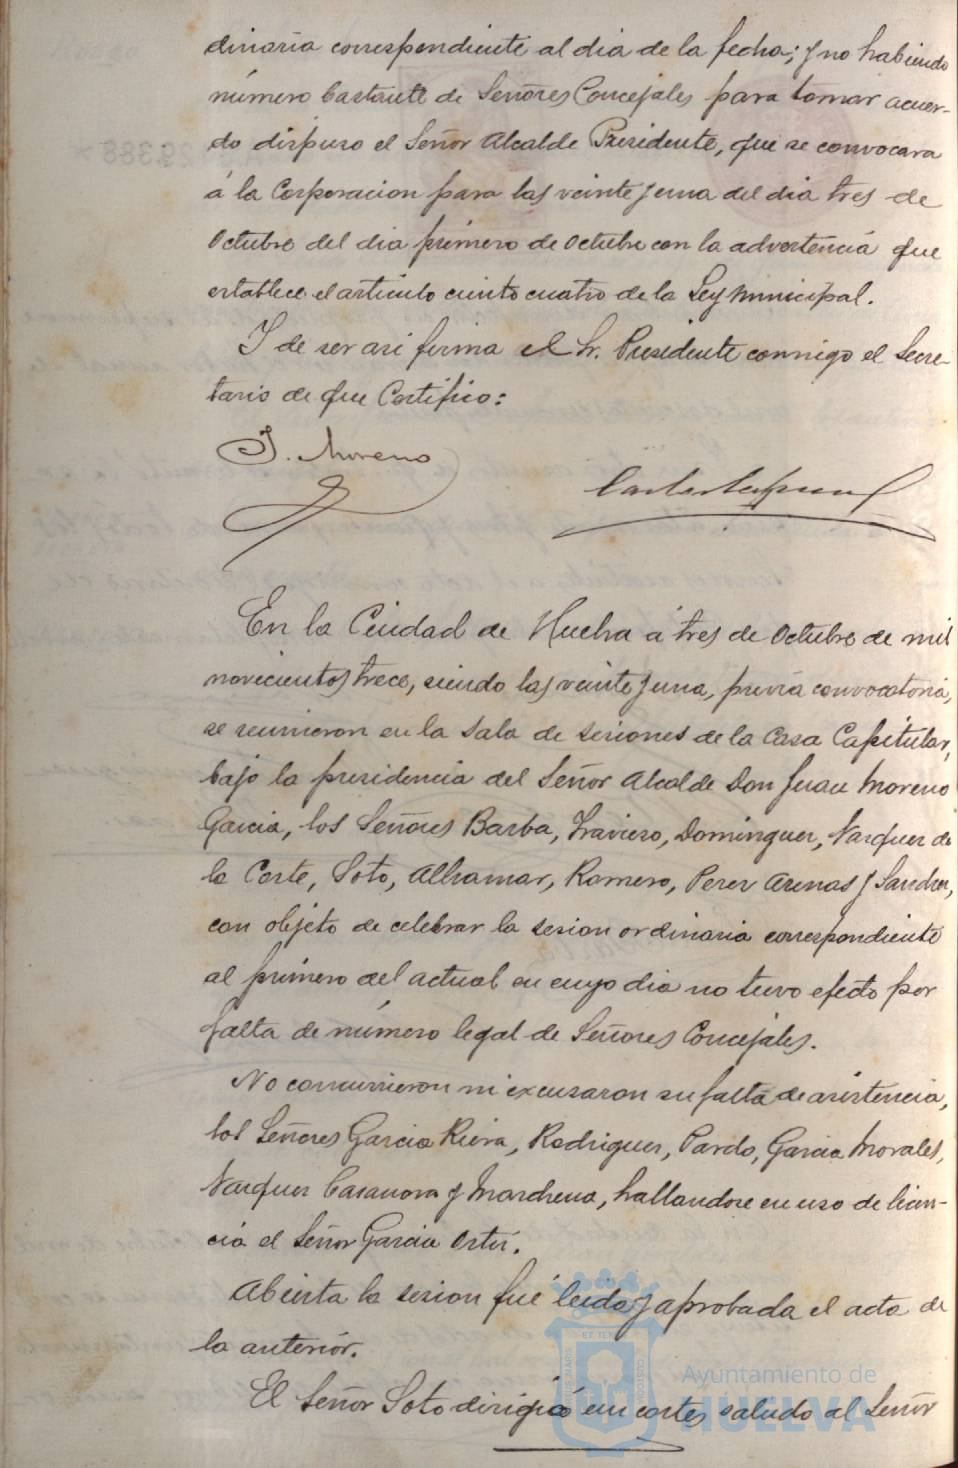 dinaria correspondiente al dia de la fecha; y no habiendo
número bastante de Señores Concejales para tomar acuer-
do dispuso el Señor Alcalde Presidente, que se convocara
á la Corporacion para las veinte y una del dia tres de
Octubre del dia primero de Octubre con la advertencia que
establece el articulo ciento cuatro de la Ley Municipal.
Y de ser asi firma el Sr. Presidente conmigo el Secre-
tario de que Certifico:
J. Moreno
En la Ciudad de Huelva á tres de Octubre de mil
novecientos trece, siendo las veinte y una, previa convocatoria,
se reunieron en la Sala de sesiones de la Casa Capitular,
bajo la presidencia del Señor Alcalde Don Juan Moreno
Garcia, los Señores Barba, Traviero, Dominguez, Vazquez de
la Corte, Soto, Alhamar, Romero, Perez Arenas y Sanchez,
con objeto de celebrar la sesion ordinaria correspondiente
al primero del actual en cuyo dia no tuvo efecto por
falta de número legal de Señores Concejales.
No concurrieron ni excusaron su falta de asistencia,
los Señores Garcia Riera, Rodriguez, Pardo, Garcia Morales,
Vazquez Casanova y Marchena, hallandose en uso de licen-
cia el Señor Garcia Ortiz.
Abierta la sesion fué leida y aprobada el acta de
la anterior.
El Señor Soto dirigió un cortes saludo al Señor
Ayuntamiento de
HUELVA